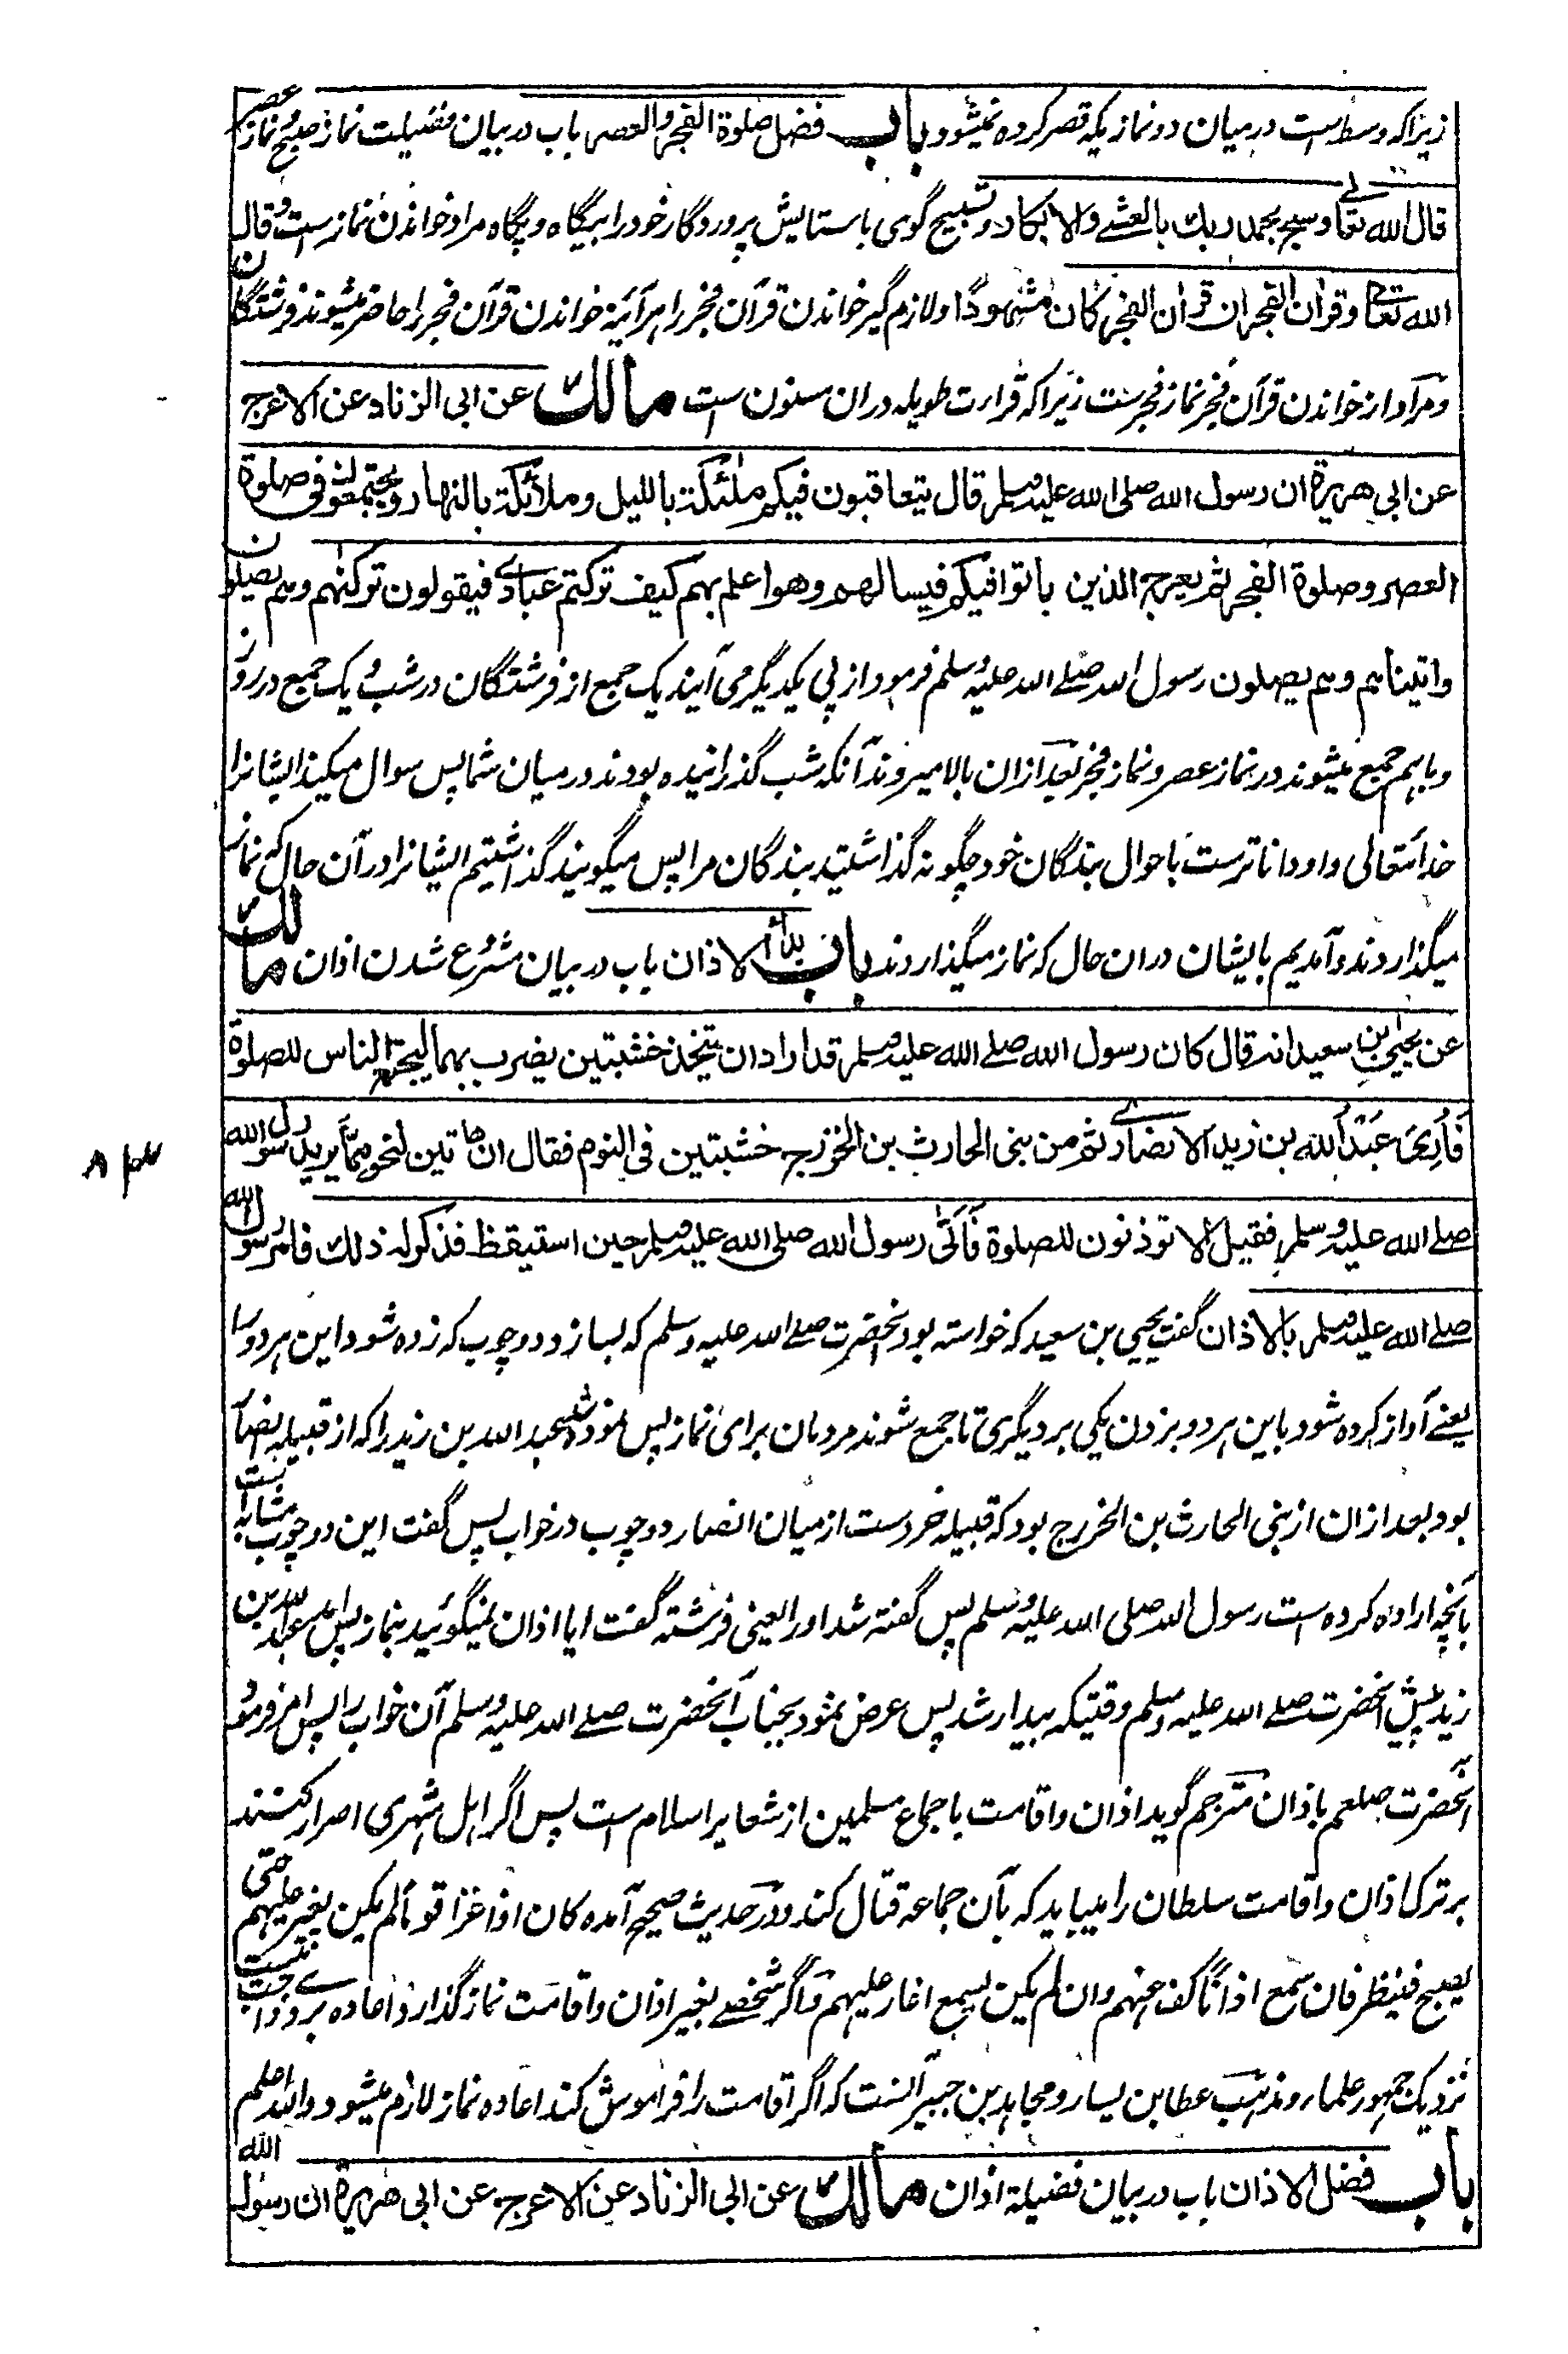 زیراکه وسط است درمیان دو نماز یکه قصر کرده نمیشوو باب فضل صلوة الفجر والعصر باب در بیان فضیلت نماز صبح نماز عصر
قال الله تعالے وسبح بحمد ربک بالعشے والابکار وتسبیح گوی باستایش پروردگار خود را بیگاه وپگاه مراد خواندن نماز ست وقال
الله تعالے وقرآن الفجر ان قرآن الفجر کان مشهودا ولازم گیر خواندن قرآن فجر را هرآئینه خواندن قرآن فجر را حاضر میشوند فرشتگان
ومراد از خواندن قرآن فجر نماز فجرست زیرا که قراءت طویله دران مسنون است مالک عن ابی الزناد عن الاعرج
عن ابی هریرة ان رسول الله صلی الله علیه وسلم قال یتعاقبون فیکم ملئکة باللیل وملائکة بالنهار ویجتمعون فی صلوة
العصر وصلوة الفجر ثم یعرج الذین باتوا فیکم فیسالهم وهو اعلم بهم کیف ترکتم عبادے فیقولون ترکنهم وهم یصلون
واتیناهم وهم یصلون رسول الله صلے الله علیه وسلم فرمود از پی یکدیگر می آیند یک جمع از فرشتگان در شب ویک جمع در روز
وباهم جمع میشوند در نماز عصر ونماز فجر بعد ازان بالا میروند آنکه شب گذرانیده بودند درمیان شما پس سوال میکند ایشانرا
خدائتعالی واو داناترست باحوال بندگان خود چگونه گذاشتید بندگان مرا پس میگویند گذاشتیم ایشانرا در آن حال که نماز
میگذاردند وآمدیم بایشان دران حال که نماز میگذاردند باب بدأ الاذان باب در بیان مشروع شدن اذان مالک
عن یحیی بن سعید انه قال کان رسول الله صلے الله علیه وسلم قد اراد ان یتخذ خشبتین یضرب بهما لیجتمع الناس للصلوة
فأری عبد الله بن زید الانصارے ثم من بنی الحارث بن الخزرج خشبتین فی النوم فقال ان هاتین لنحو مما یرید رسول الله
صلے الله علیه وسلم فقیل الا توذنون للصلوة فأتی رسول الله صلی الله علیه وسلم حین استیقظ فذکر له ذلک فامر رسول الله
صلے الله علیه وسلم بالاذان گفت یحیی بن سعید که خواسته بود آنحضرت صلے الله علیه وسلم که بسازد دو چوب که زده شود این هر دو را
یعنے آواز کرده شود باین هر دو بزدن یکی بر دیگری تا جمع شوند مردمان برای نماز پس نموده شد عبد الله بن زید را که از قبیله انصار
بود بعد ازان از بنی الحارث بن الخزرج بود که قبیله خردست از میان انصار دو چوب در خواب پس گفت این دو چوب مشابه است
بآنچه اراده کرده است رسول الله صلی الله علیه وسلم پس گفته شد اورا یعنی فرشته گفت ایا اذان نمیگوئید بنماز پس آمد عبد الله بن
زید پیش آنحضرت صلے الله علیه وسلم وقتیکه بیدار شد پس عرض نمود بجناب آنحضرت صلے الله علیه وسلم آن خواب را پس امر فرمود
آنحضرت صلعم باذان مترجم گوید اذان واقامت باجماع مسلمین از شعایر اسلام است پس اگر اهل شهری اصرار کنند
بر ترک اذان واقامت سلطان را میباید که بآن جماعه قتال کند ودر حدیث صحیح آمده کان اذا غزا قوما لم یکن یغیر علیهم حتی
یصبح فینظر فان سمع اذانا کف عنهم وان لم یکن یسمع اغار علیهم واگر شخصے بغیر اذان واقامت نماز گذارد اعاده بروے واجب نیست
نزدیک جمهور علماء ومذهب عطا بن یسار ومجاهد بن جبیر آنست که اگر اقامت را فراموش کند اعاده نماز لازم میشود والله اعلم
باب فضل الاذان باب در بیان فضیلة اذان مالک عن ابی الزناد عن الاعرج عن ابی هریرة ان رسول الله